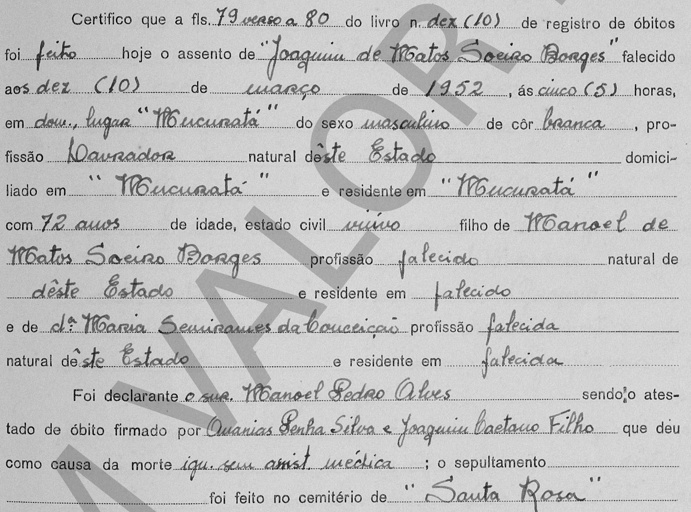 Certifico que a fls. 79 verso a 80 do livro n. dez (10) de registro de óbitos
foi feito hoje o assento de "Joaquim de Matos Soeiro Borges" falecido
aos dez (10) de março de 1952, ás cinco (5) horas,
em dom., lugar "Mucuratá" do sexo masculino de côr branca, pro-
fissão Lavrador natural dêste Estado domici-
liado em "Mucuratá" e residente em "Mucuratá"
com 72 anos de idade, estado civil viúvo filho de Manoel de
Matos Soeiro Borges profissão falecido natural de
dêste Estado e residente em falecido
e de d.ª Maria Semirames da Conceição profissão falecida
natural dêste Estado e residente em falecida
Foi declarante o snr. Manoel Pedro Alves sendo o ates-
tado de óbito firmado por Ananias Penha Silva e Joaquim Caetano Filho que deu
como causa da morte ign. sem assist. médica; o sepultamento
foi feito no cemitério de "Santa Rosa"
M VALOR